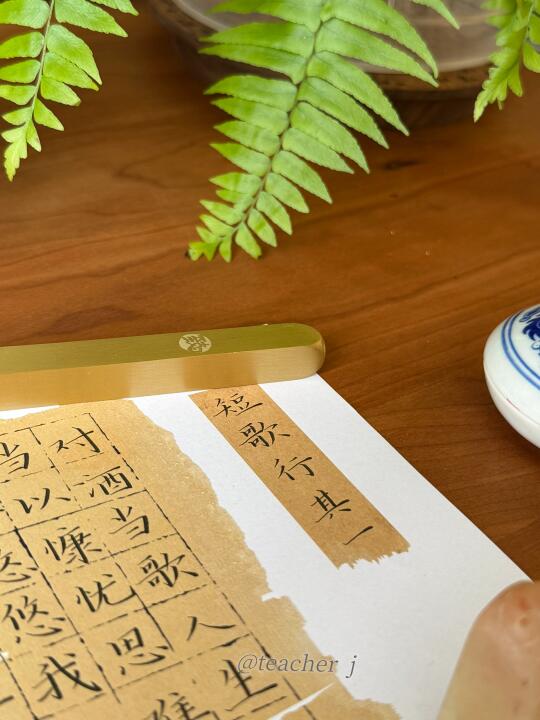 短歌行其一
对酒当歌人生
当以慷忧思难
悠悠我
@teacher j